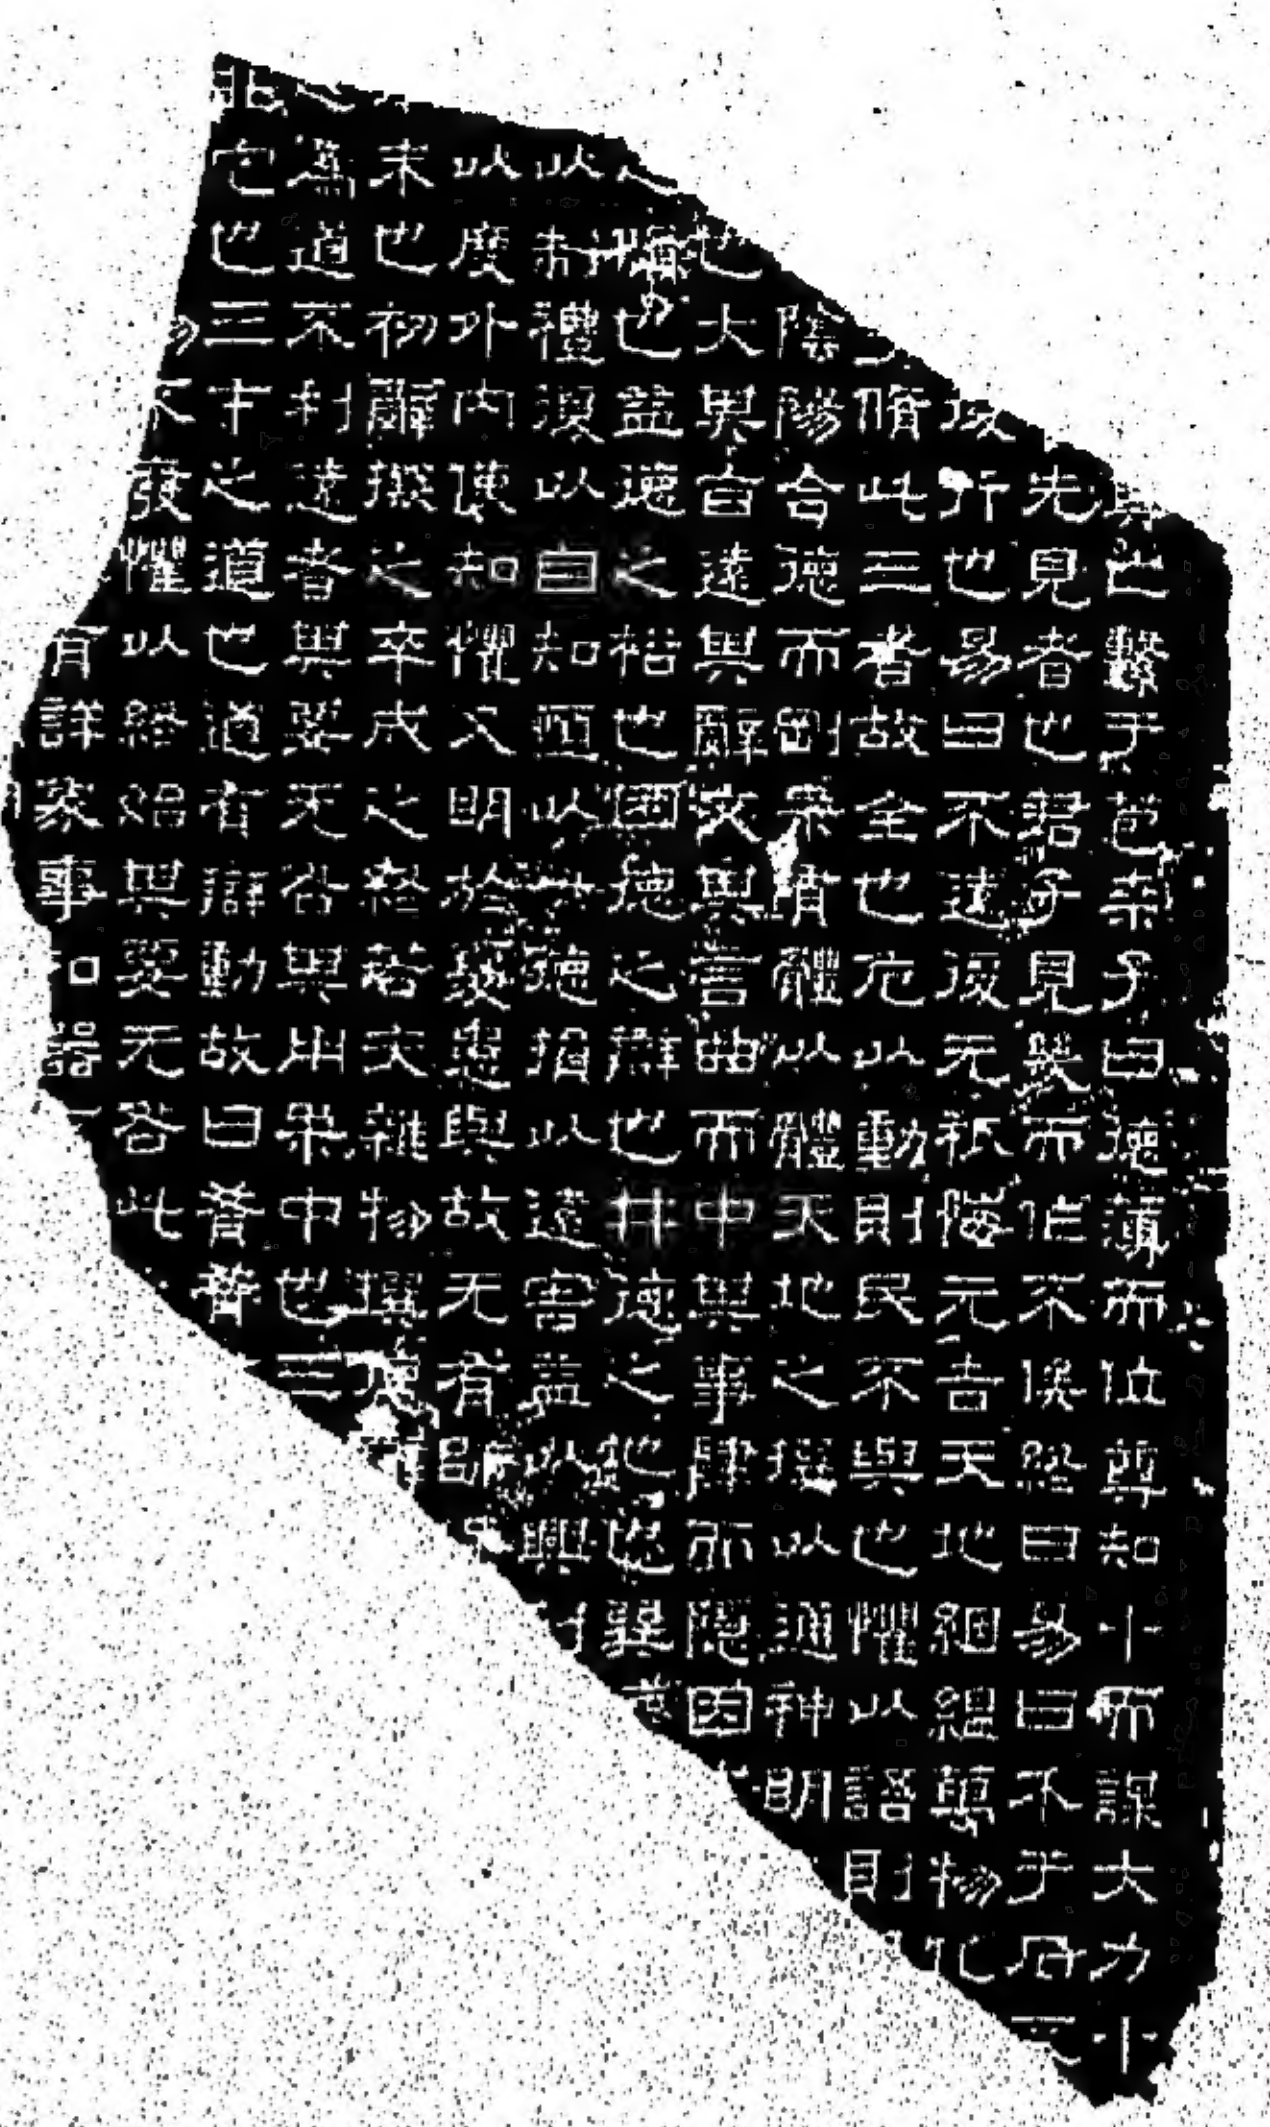 其亡繫于苞桒子曰德薄而位尊知小而謀大力小
先見者也君子見幾而作不俟終日易曰介于石不
復行也易曰不遠復元祇悔元吉天地絪緼萬物化
脩此三者故全也危以動則民不與也懼以語則
陰陽合德而剛柔有體以體天地之撰以通神明
也大其旨遠其辭文其言曲而中其事肆而隱因
之脩也益德之裕也困德之辯也井德之地也巽
以和禮復以自知恒以一德損以遠害益以興利
以度外内使知懼又明於憂患與故无有師
末也初辭擬之卒成之終若夫雜物撰德
爲道不利遠者其要无咎其用柔中也三
它也三才之道也道有變動故曰爻爻
物不廢懼以終始其要无咎此
有詳象事知器